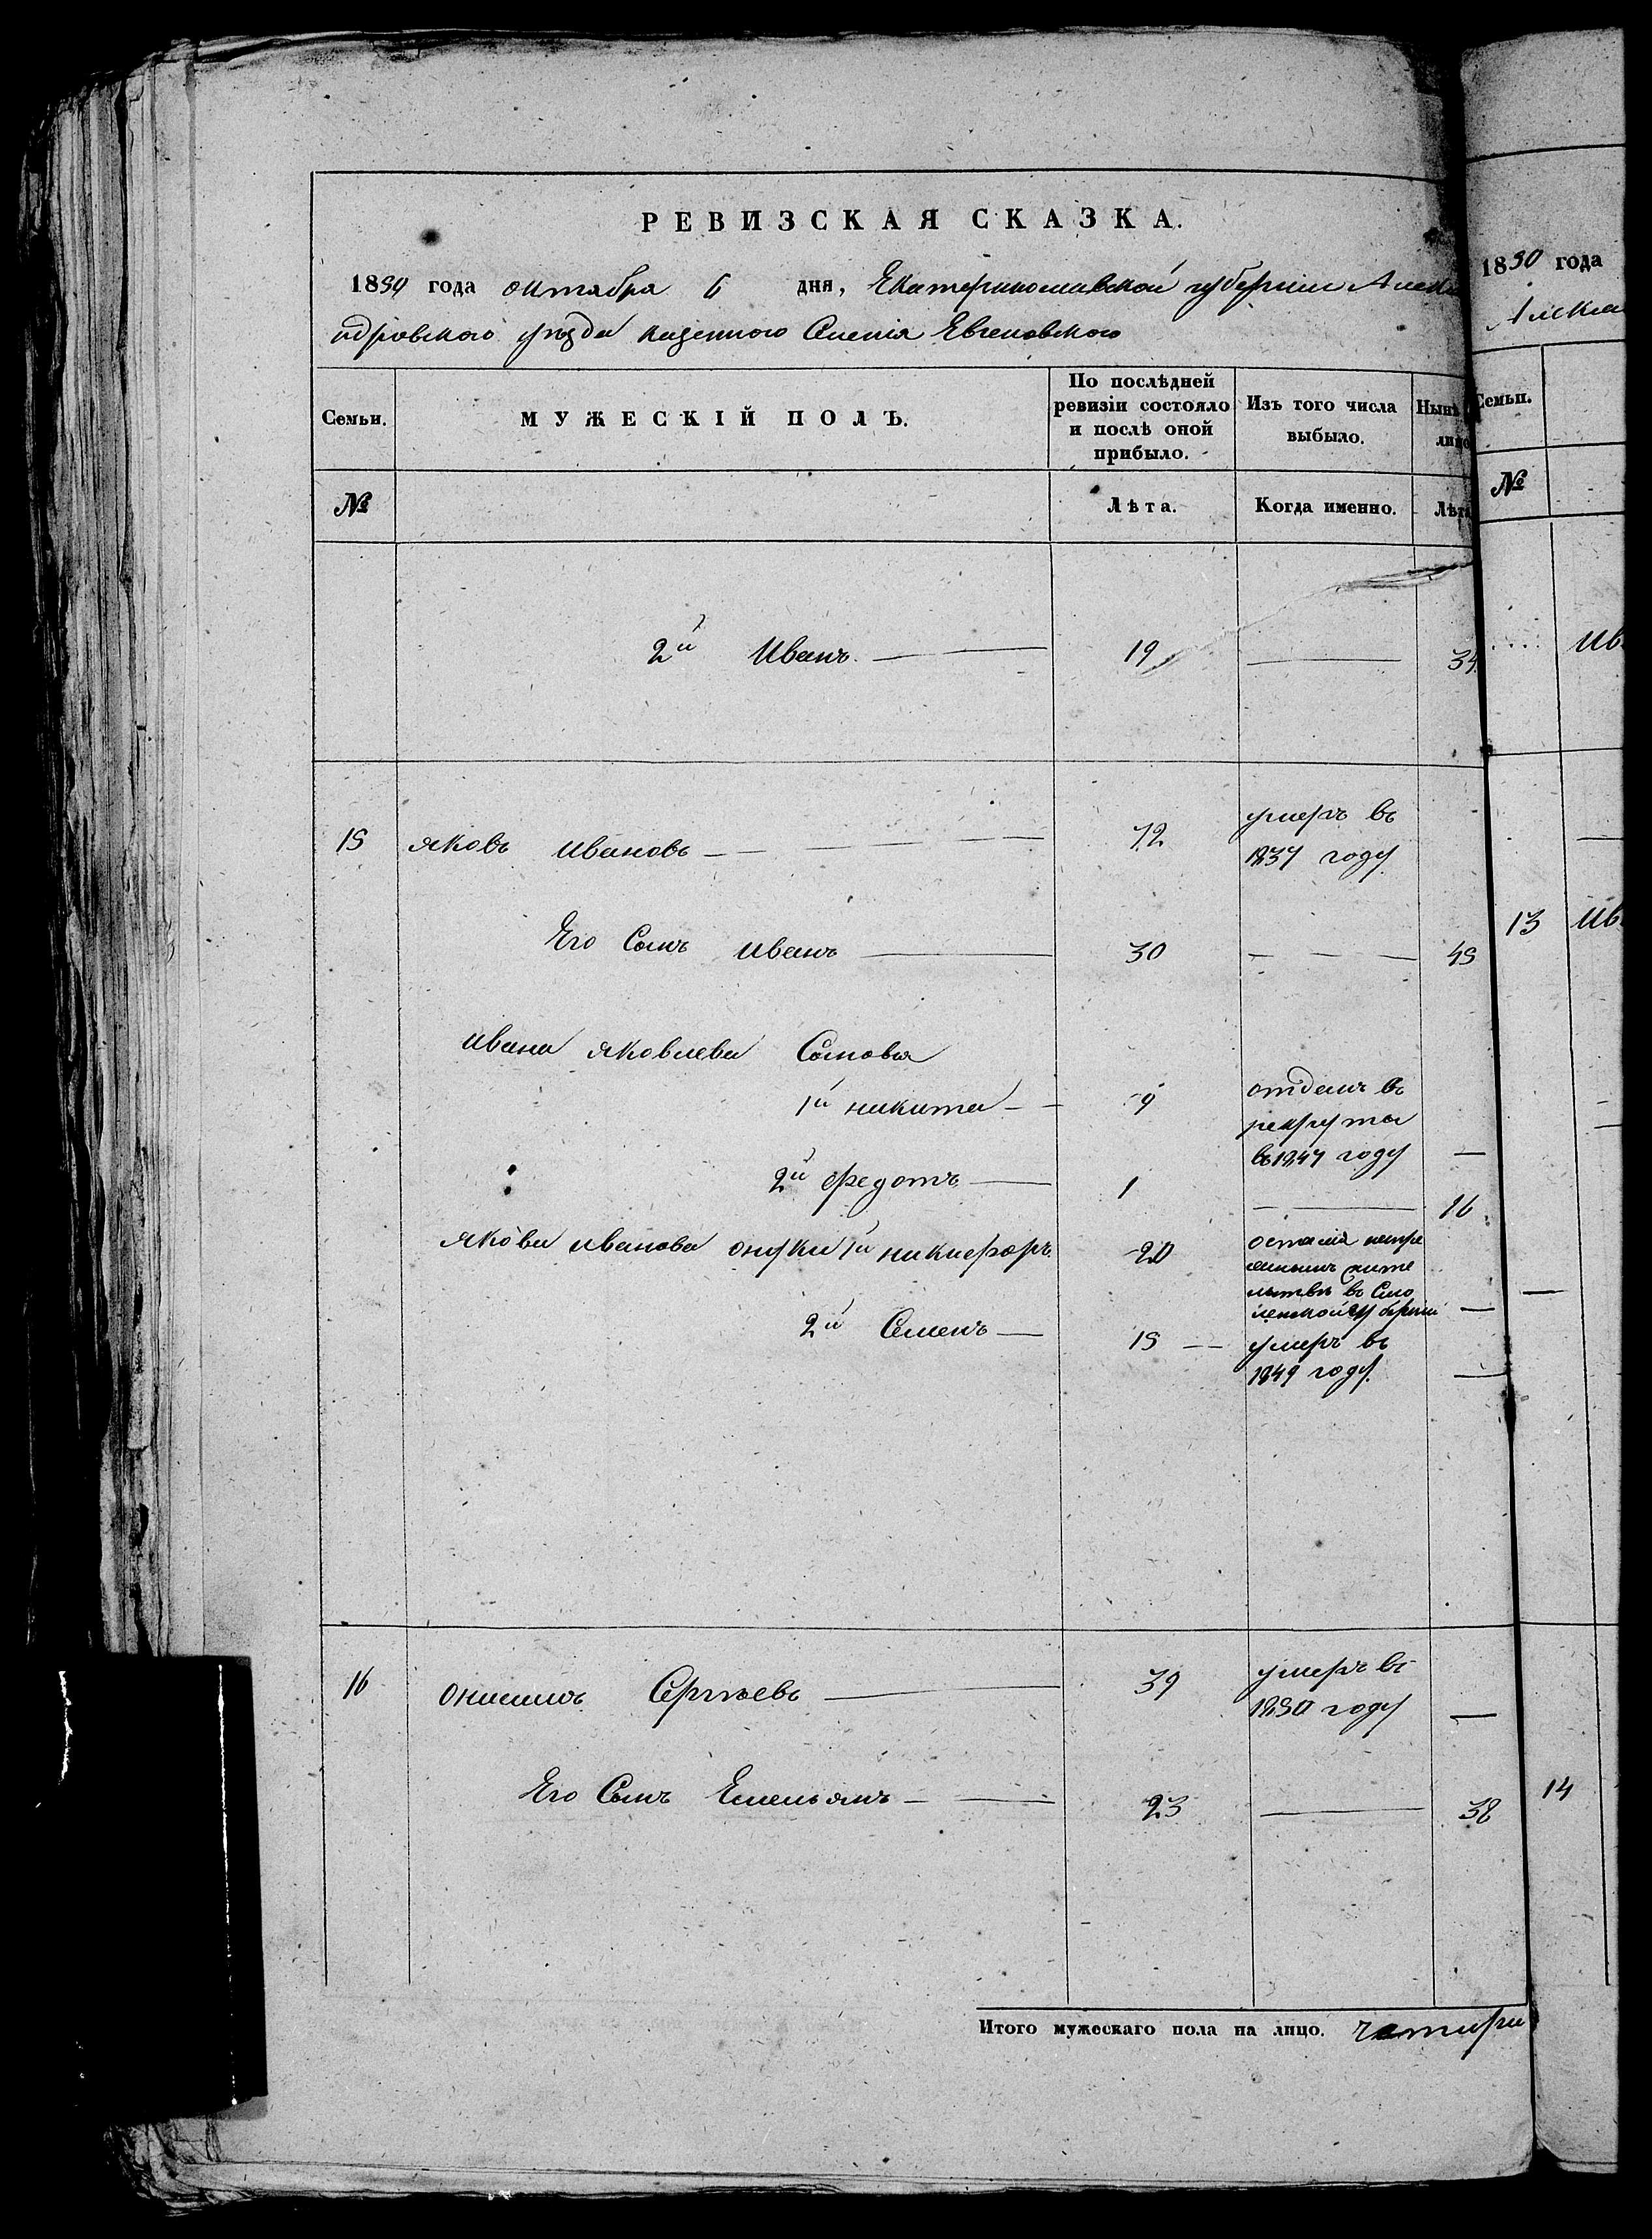 РЕВИЗСКАЯ СКАЗКА.
1850 года октября 6 дня, Екатеринославской губернии Алекса
ндровского уезда казенного Селенія
Семьи. МУЖЕСКІЙ ПОЛЪ. По послѣдней ревизіи состояло и послѣ оной прибыло. Изъ того числа выбыло. Нынѣ
№ Лѣта. Когда именно. Лѣта
2й Иванъ 19 34
15 яковъ ивановъ 72 умеръ въ
1837 году
Его Сынъ иванъ 30 45
ивана яковлева Сыновья
1й никита 9 отданъ въ
рекруты
въ 1847 году
2й федотъ 1 16
якова иванова онуки 1й никифоръ 20
въ Смо
ленской губерніи
2й Семенъ 15 умеръ въ
1849 году
16 онисимъ Сергѣевъ 39 умеръ въ
1850 году
Его Сынъ Емельянъ 23 38
Итого мужескаго пола на лицо. четыри
1850 года
Алекса
Семьи.
№
Ив
13 Ив
14